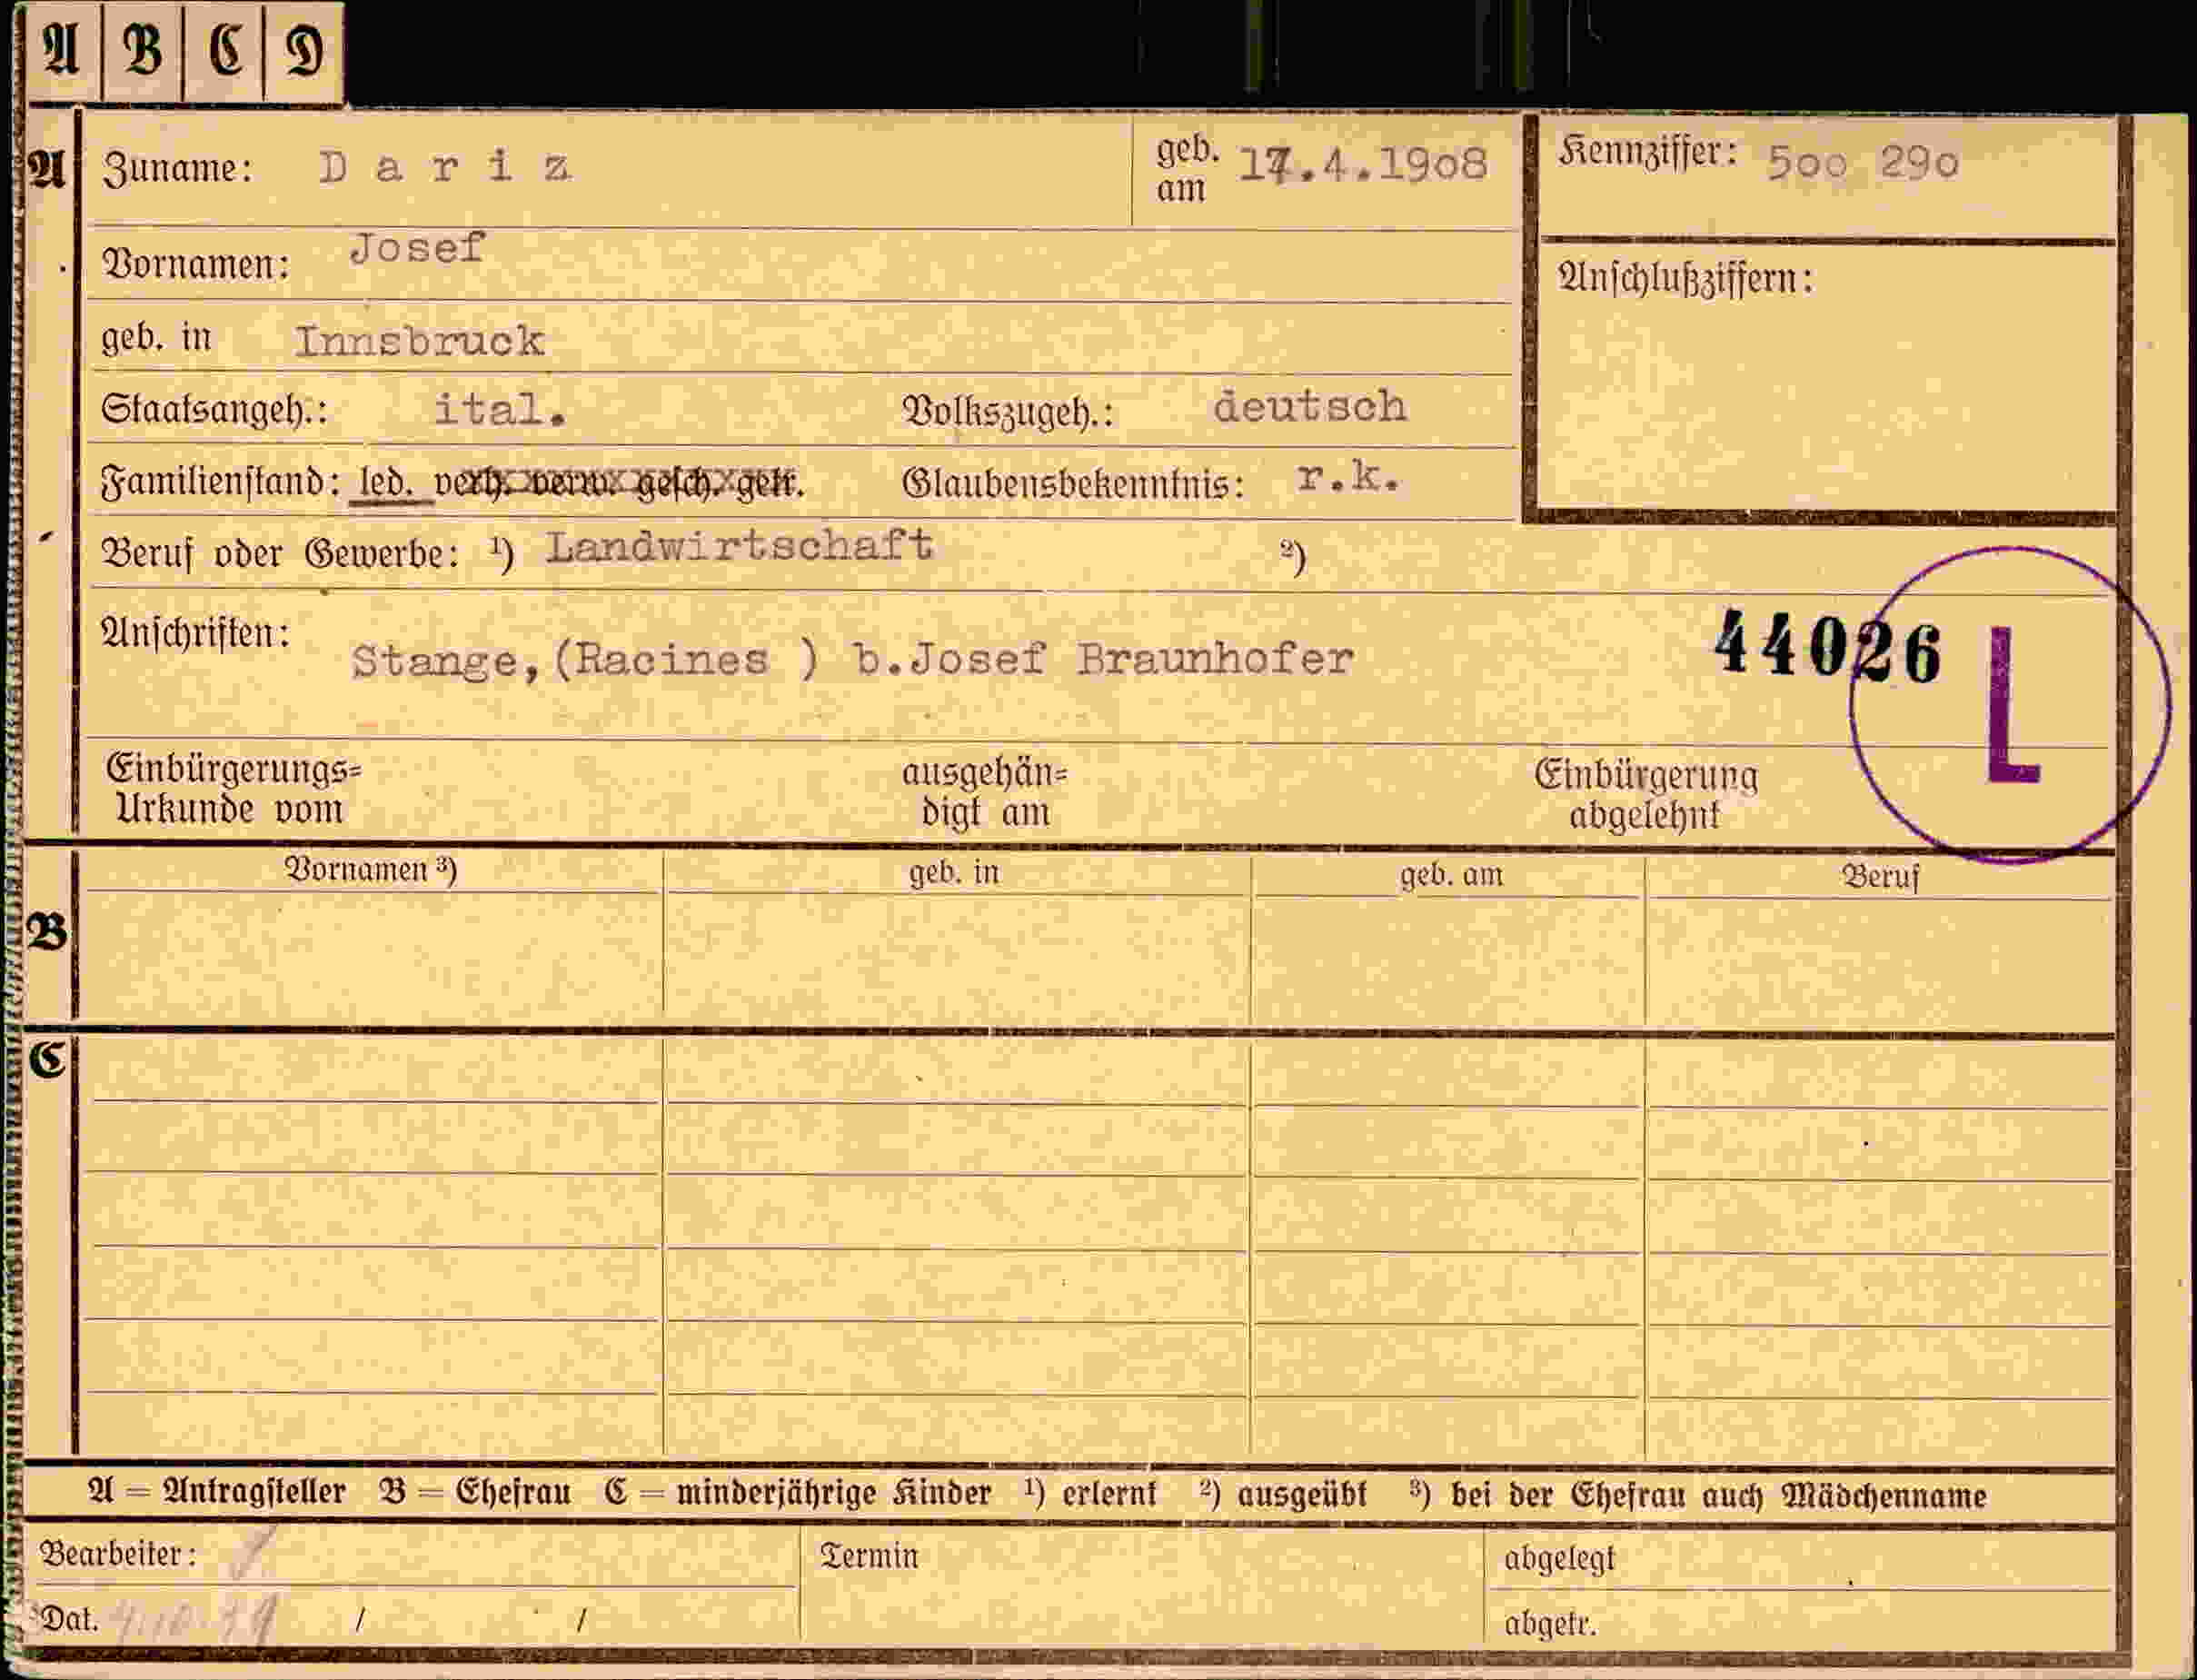 A B C D
A Zuname: Dariz geb. am 17.4.1908 Kennziffer: 500 290
Vornamen: Josef Anschlußziffern:
geb. in Innsbruck
Staatsangeh.: ital. Volkszugeh.: deutsch
Familienstand: led. verh. verw. gesch. getr. Glaubensbekenntnis: r.k.
Beruf oder Gewerbe: ¹) Landwirtschaft ²)
Anschriften: Stange,(Racines ) b.Josef Braunhofer 44026 L
Einbürgerungs= ausgehän= Einbürgerung
Urkunde vom digt am abgelehnt
Vornamen ³) geb. in geb. am Beruf
B
C
A = Antragsteller B = Ehefrau C = minderjährige Kinder ¹) erlernt ²) ausgeübt ³) bei der Ehefrau auch Mädchenname
Bearbeiter: Termin abgelegt
Dat. / / abgetr.